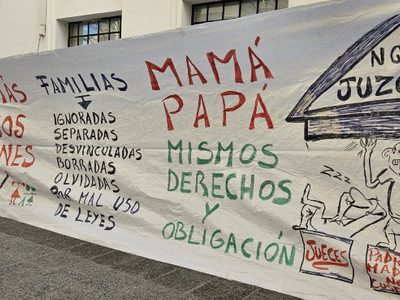 FAMILIAS
IGNORADAS
SEPARADAS
DESVINCULADAS
BORRADAS
OLVIDADAS
POR MAL USO
DE LEYES
MAMÁ
PAPÁ
MISMOS
DERECHOS
Y
OBLIGACIÓN
JUECES